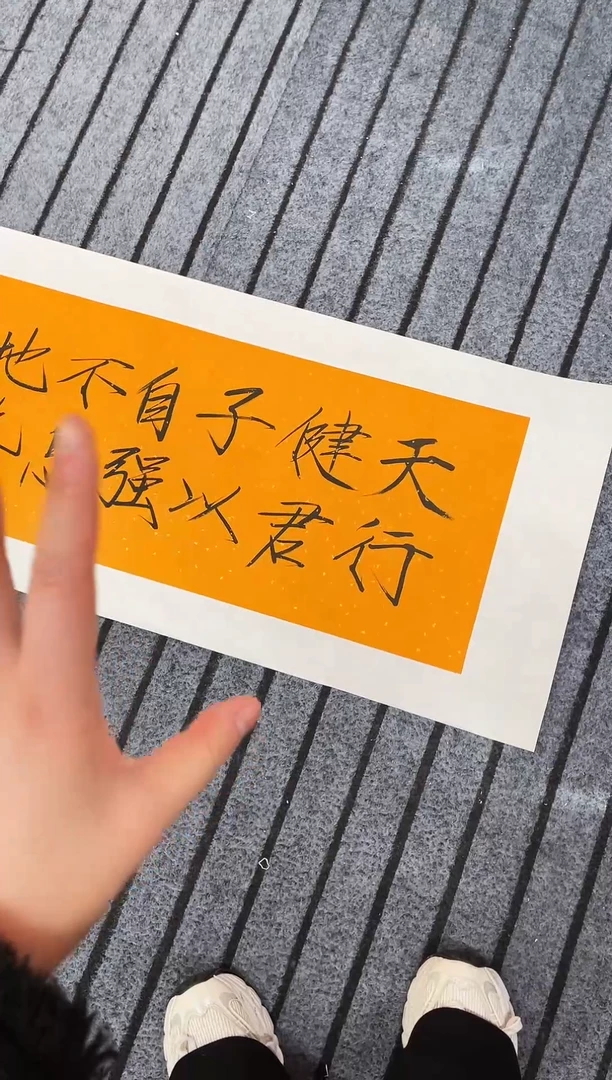 天行
健君
子以
自强
不息
地